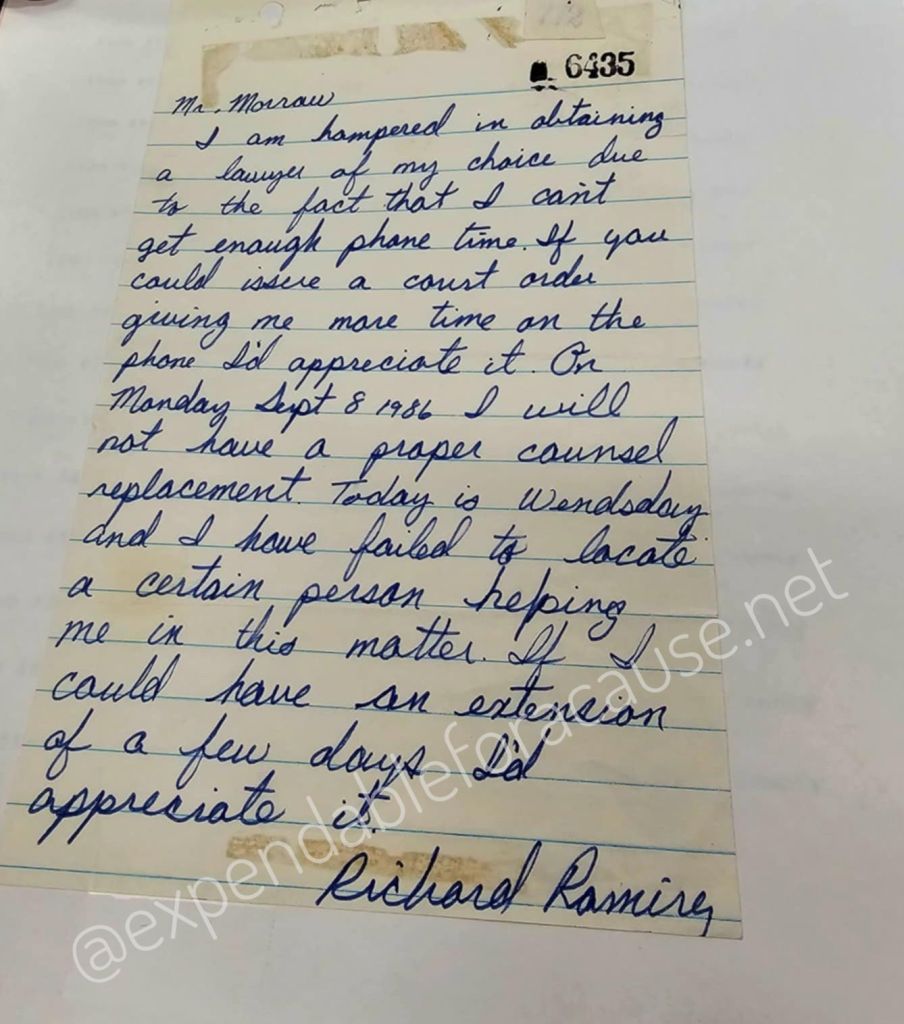 112
6435
Mr. Morrow
I am hampered in obtaining
a lawyer of my choice due
to the fact that I can't
get enough phone time. If you
could issue a court order
giving me more time on the
phone I'd appreciate it. On
Monday Sept 8 1986 I will
not have a proper counsel
replacement. Today is Wendsday
and I have failed to locate
a certain person helping
me in this matter. If I
could have an extension
of a few days I'd
appreciate it.
Richard Ramirez
@expendableforacause.net